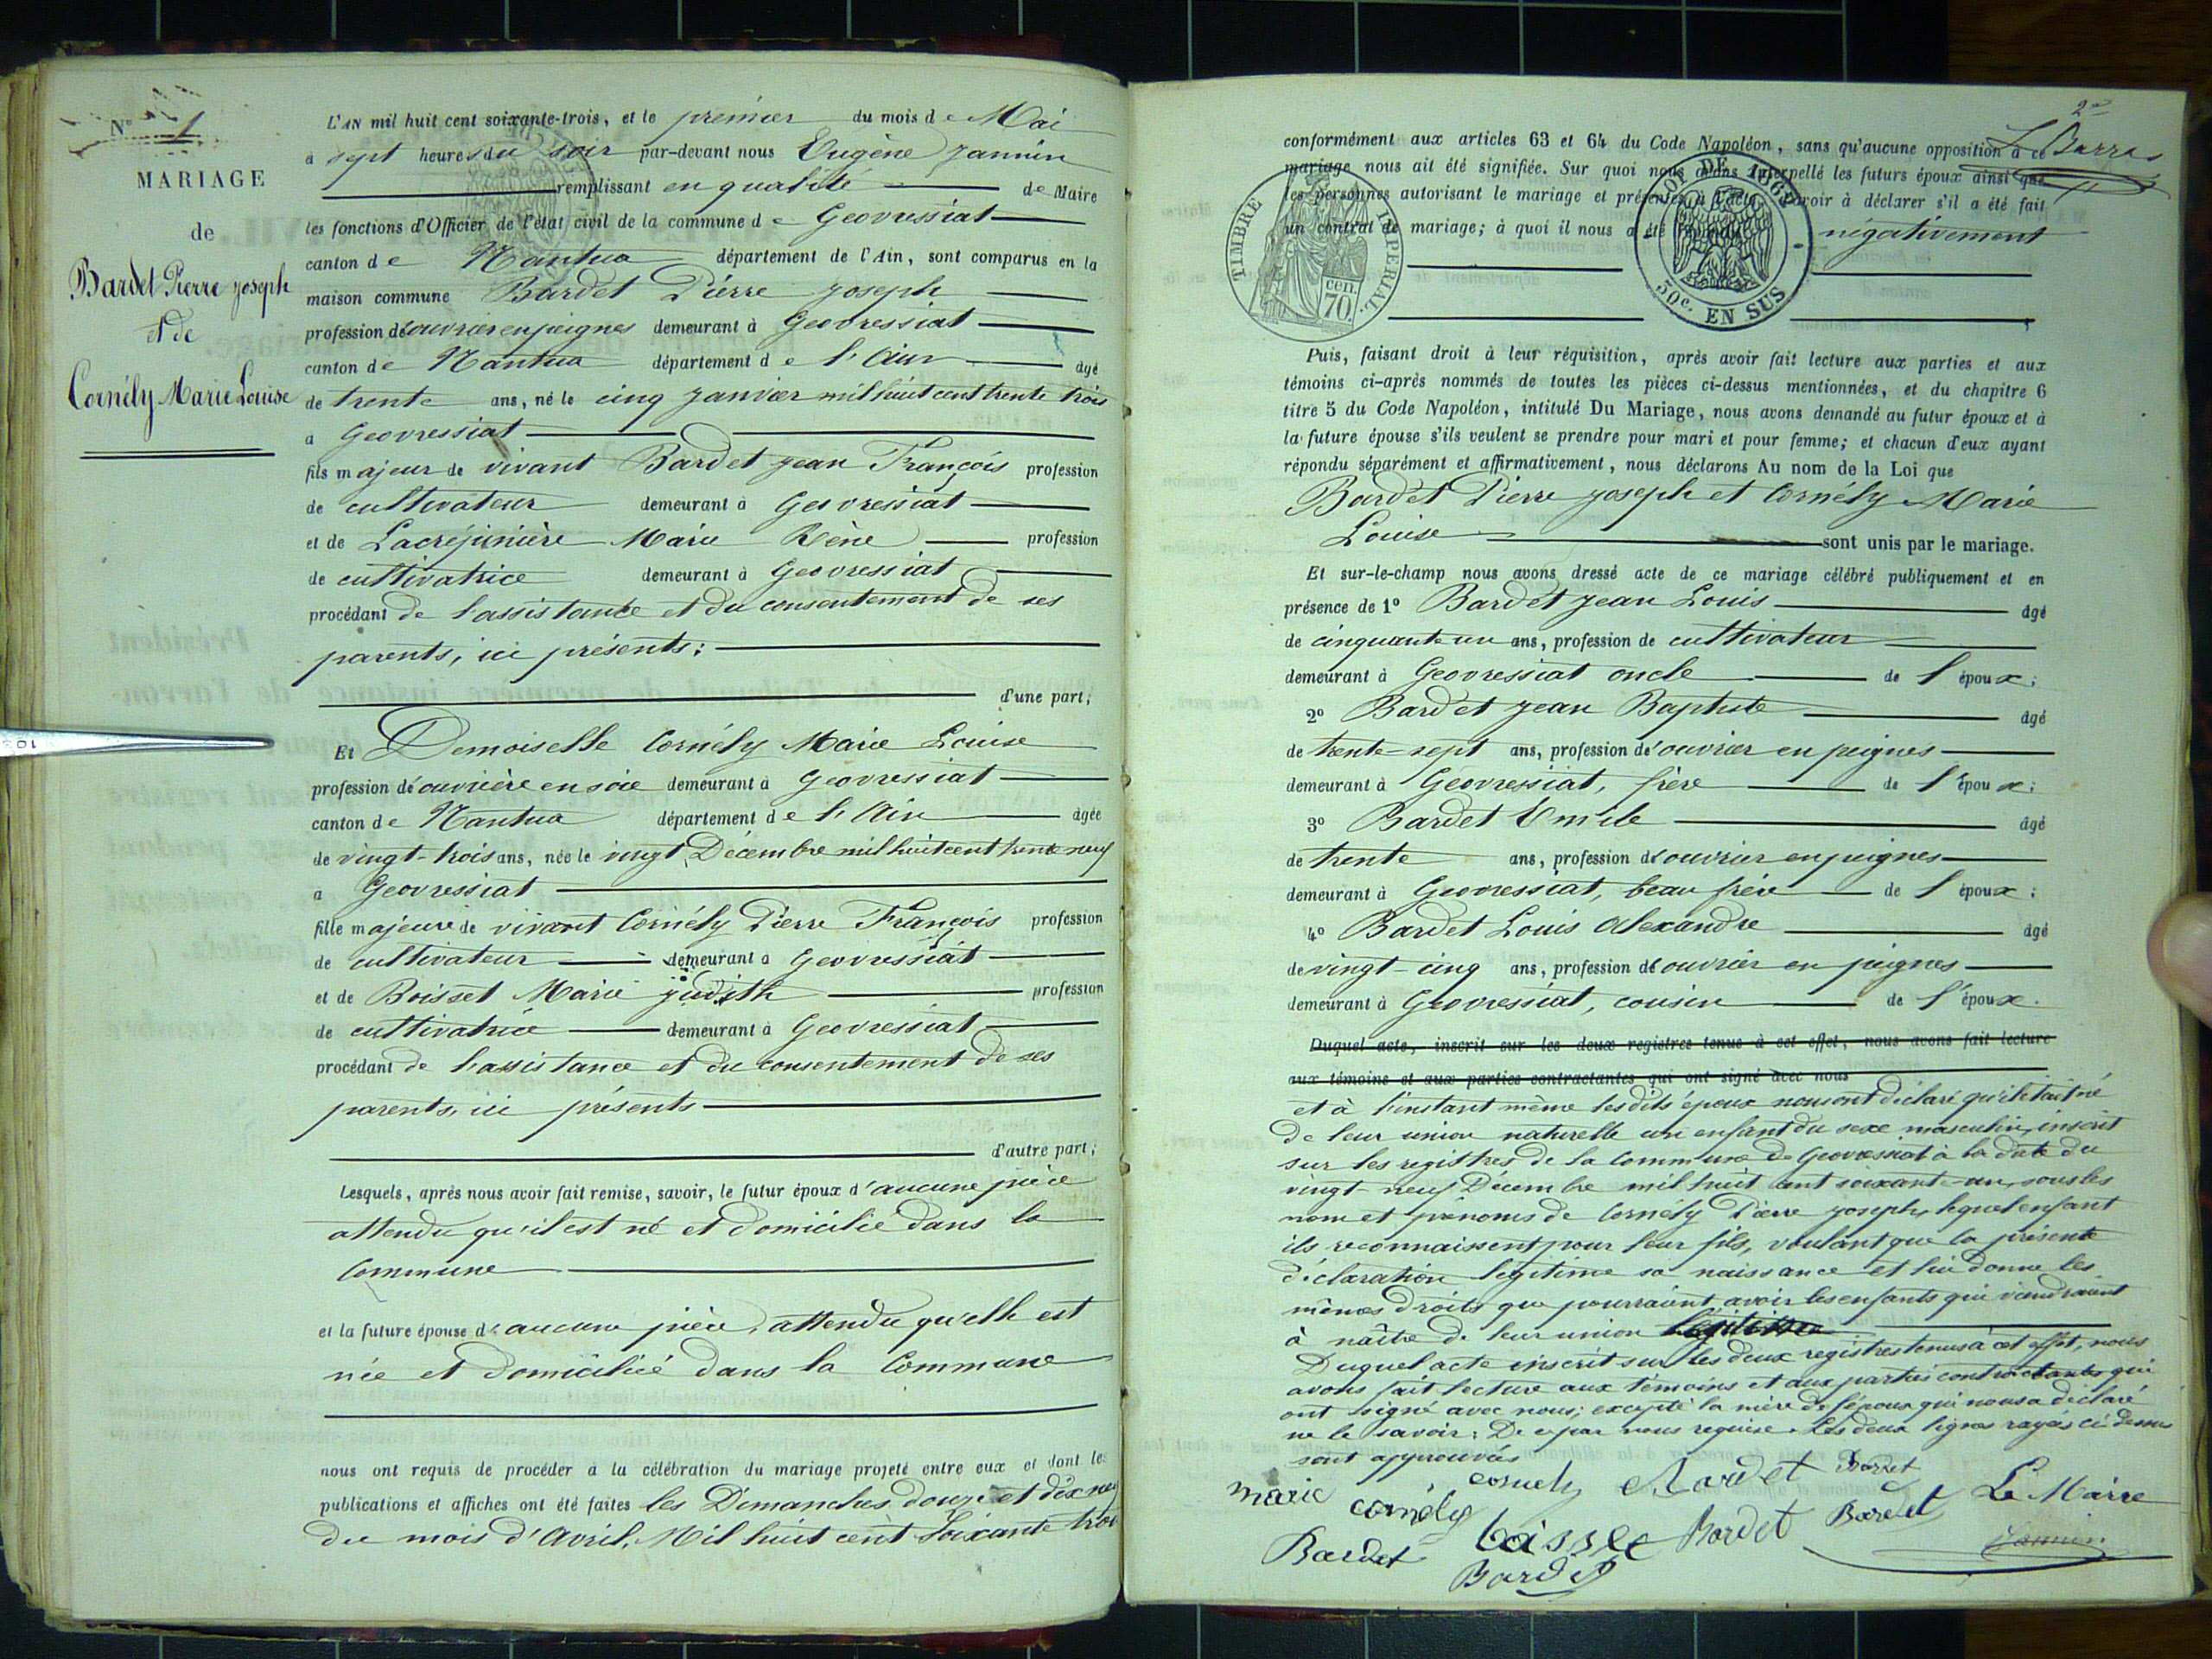 N° 1
MARIAGE
de
Bardet Pierre Joseph
et de
Cornély Marie Louise
L'AN mil huit cent soixante-trois, et le premier du mois de Mai
à sept heures du soir par-devant nous Eugène Jannin
remplissant en qualité de Maire
les fonctions d'Officier de l'état civil de la commune de Geovressiat
canton de Nantua département de l'Ain, sont comparus en la
maison commune Bardet Pierre Joseph
profession d'ouvrier en peignes demeurant à Geovressiat
canton de Nantua département de l'Ain âgé
de trente ans, né le cinq Janvier mil huit cent trente trois
à Geovressiat
fils majeur de vivant Bardet Jean François profession
de cultivateur demeurant à Geovressiat
et de Lacréjinière Marie Rène profession
de cultivatrice demeurant à Geovressiat
procédant de l'assistance et du consentement de ses
parents, ici présents;
d'une part;
Et Demoiselle Cornély Marie Louise
profession d'ouvrière en soie demeurant à Geovressiat
canton de Nantua département de l'Ain âgée
de vingt-trois ans, née le vingt Décembre mil huit cent trente neuf
à Geovressiat
fille majeure de vivant Cornély Pierre François profession
de cultivateur demeurant à Geovressiat
et de Boisset Marie Judith profession
de cultivatrice demeurant à Geovressiat
procédant de l'assistance et du consentement de ses
parents, ici présents
d'autre part;
Lesquels, après nous avoir fait remise, savoir, le futur époux d'aucune pièce
attendu qu'il est né et domicilié dans la
Commune
et la future épouse d'aucune pièce, attendu qu'elle est
née et domiciliée dans la Commune
nous ont requis de procéder à la célébration du mariage projeté entre eux et dont les
publications et affiches ont été faites les Dimanches douze et dix neuf
du mois d'Avril, Mil huit cent Soixante trois
2e
L Barras
conformément aux articles 63 et 64 du Code Napoléon, sans qu'aucune opposition à ce
mariage nous ait été signifiée. Sur quoi nous avons interpellé les futurs époux ainsi que
les personnes autorisant le mariage et présentes à l'acte, d'avoir à déclarer s'il a été fait
un contrat de mariage; à quoi il nous a été répondu négativement
TIMBRE IMPERIAL
70 cen.
LOI DE 1862
50c. EN SUS
Puis, faisant droit à leur réquisition, après avoir fait lecture aux parties et aux
témoins ci-après nommés de toutes les pièces ci-dessus mentionnées, et du chapitre 6
titre 5 du Code Napoléon, intitulé Du Mariage, nous avons demandé au futur époux et à
la future épouse s'ils veulent se prendre pour mari et pour femme; et chacun d'eux ayant
répondu séparément et affirmativement, nous déclarons Au nom de la Loi que
Bardet Pierre Joseph et Cornély Marie
Louise sont unis par le mariage.
Et sur-le-champ nous avons dressé acte de ce mariage célébré publiquement et en
présence de 1° Bardet Jean Louis âgé
de cinquante un ans, profession de cultivateur
demeurant à Geovressiat oncle de l'époux;
2° Bardet Jean Baptiste âgé
de trente-sept ans, profession d'ouvrier en peignes
demeurant à Geovressiat, frère de l'époux;
3° Bardet Emile âgé
de trente ans, profession d'ouvrier en peignes
demeurant à Geovressiat, beau frère de l'époux;
4° Bardet Louis Alexandre âgé
de vingt-cinq ans, profession d'ouvrier en peignes
demeurant à Geovressiat, cousin de l'époux.
Duquel acte, inscrit sur les deux registres tenus à cet effet, nous avons fait lecture
aux témoins et aux parties contractantes qui ont signé avec nous
et à l'instant même lesdits époux nous ont déclaré qu'il était né
de leur union naturelle un enfant du sexe masculin, inscrit
sur les registres de la Commune de Geovressiat à la date du
vingt-neuf Décembre mil huit cent soixante-un, sous les
nom et prénoms de Cornély Pierre Joseph, lequel enfant
ils reconnaissent pour leur fils, voulant que la présente
déclaration légitime sa naissance et lui donne les
mêmes droits que pourraient avoir les enfants qui viendraient
à naître de leur union légitime
Duquel acte inscrit sur les deux registres tenus à cet effet, nous
avons fait lecture aux témoins et aux parties contractantes qui
ont signé avec nous; excepté la mère de l'époux qui nous a déclaré
ne le savoir, De ce par nous requise. Les deux lignes rayées ci-dessus
sont approuvées
marie cornély Bardet Bardet Le Maire
Bardet Boisset Bardet Bardet Jannin
Bardet